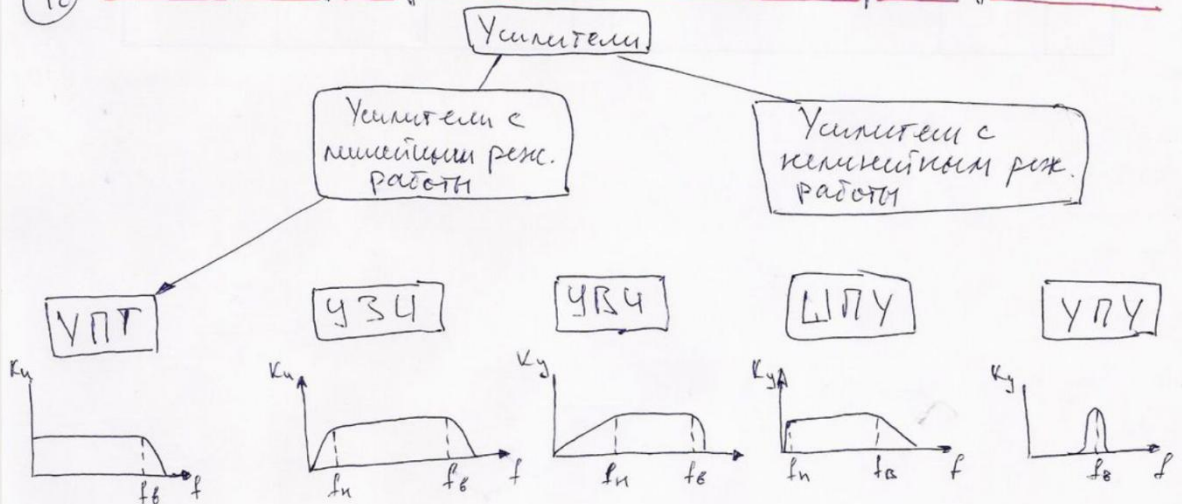 Усилители
Усилители с
линейным реж.
работы
Усилители с
нелинейным реж.
работы
УПТ
УЗЧ
УВЧ
ШПУ
УПУ
Ku
fв
f
Ku
fн
fв
f
Ky
fн
fв
Ky
fн
fв
f
Ky
fв
f